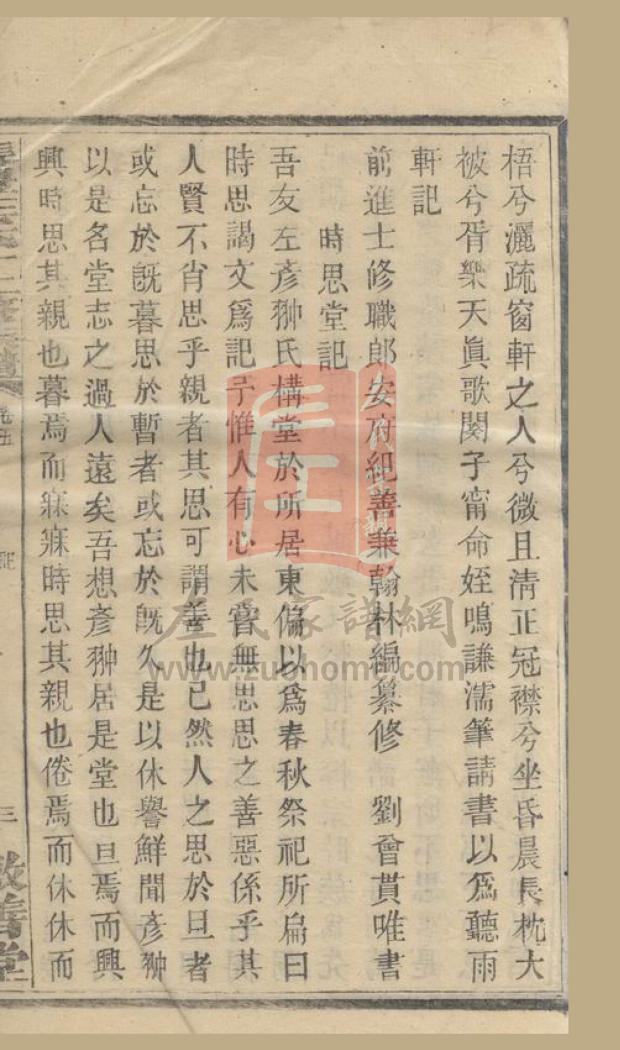 梧兮灑疏窗軒之人兮微且清正冠襟兮坐昏晨長枕大
被兮胥樂天眞歌闋子甯命姪鳴謙濡筆請書以爲聽雨
軒記
前進士修職郎安府紀善兼翰林編纂修　劉會貫唯書
時思堂記
吾友左彥翀氏構堂於所居東偏以爲春秋祭祀所扁曰
時思謁文爲記予惟人有心未嘗無思思之善惡係乎其
人賢不肖思乎親者其思可謂善也已然人之思於旦者
或忘於旣暮思於暫者或忘於旣久是以休譽鮮聞彥翀
以是名堂志之過人遠矣吾想彥翀居是堂也旦焉而興
興時思其親也暮焉而寐寐時思其親也倦焉而休休而
三
敬善堂
左氏家譜網
www.zuohome.com